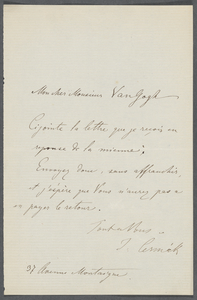 Mon cher Monsieur Van Gogh
Cijointe la lettre, que je recois en
reponse de la mienne.
Envoyez donc, sans affranchir,
et j'éspère que Vous n'aurez pas a
en payer le retour.
Tout a Vous
J. Cermák
37 Avenue Montaigne